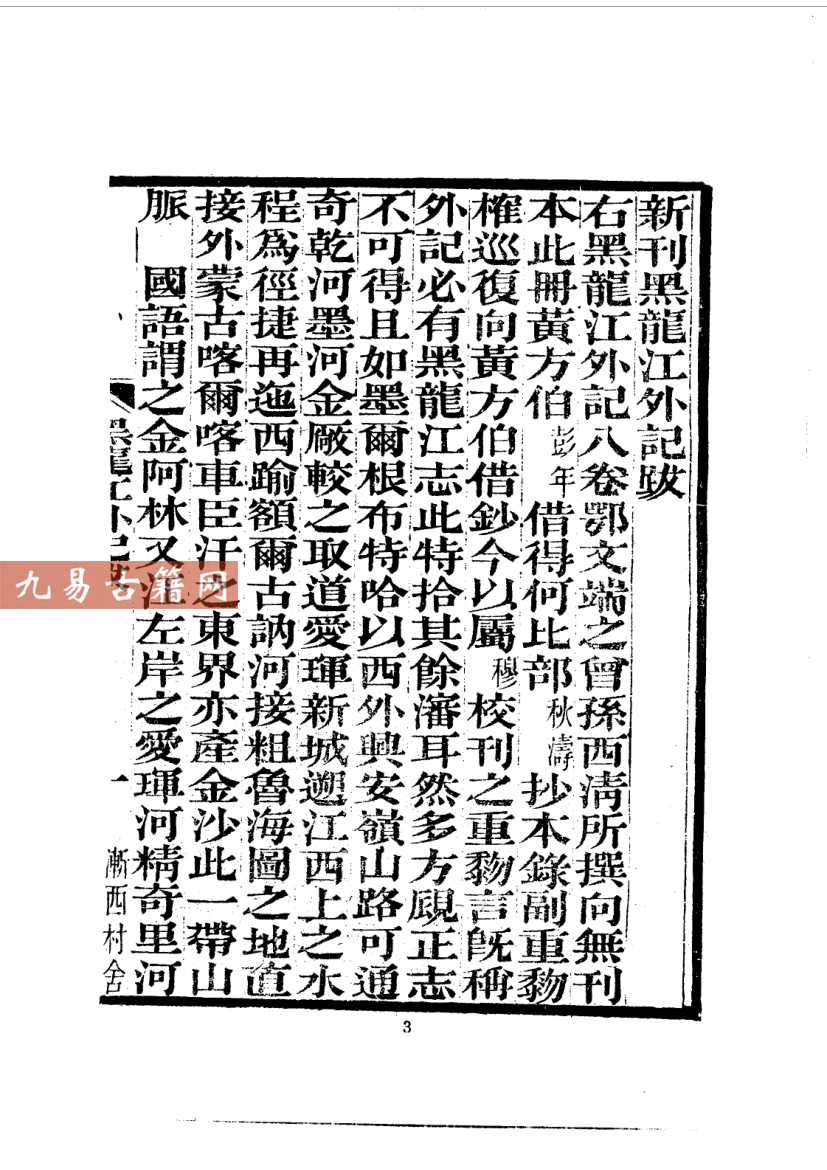 新刊黑龍江外記跋
右黑龍江外記八卷鄂文端之曾孫西淸所撰向無刊
本此冊黃方伯彭年借得何比部秋濤抄本錄副重黐
榷巡復向黃方伯借鈔今以屬穆校刊之重黐言旣稱
外記必有黑龍江志此特拾其餘瀋耳然多方覛正志
不可得且如墨爾根布特哈以西外興安嶺山路可通
奇乾河墨河金厰較之取道愛琿新城遡江西上之水
程爲徑捷再迤西踰額爾古訥河接粗魯海圖之地直
接外蒙古喀爾喀車臣汗之東界亦產金沙此一帶山
脈 國語謂之金阿林又江左岸之愛琿河精奇里河
黑龍江外記跋
一
漸西村舍
九易古籍网
3